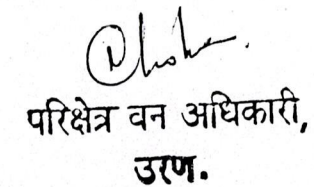 परिक्षेत्र वन अधिकारी,
उरण.